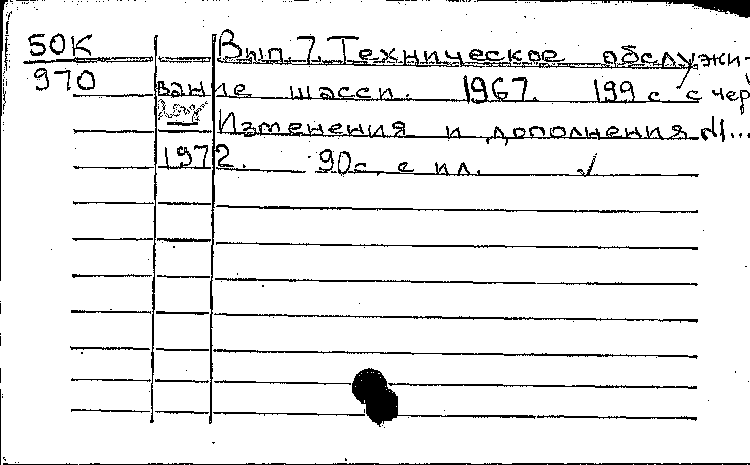 50К Вып. 7. Техническое обслужи-
970 вание шасси. 1967. 199 с с чер
Изменения и дополнения №1...
1972. 90с. с ил. ✓